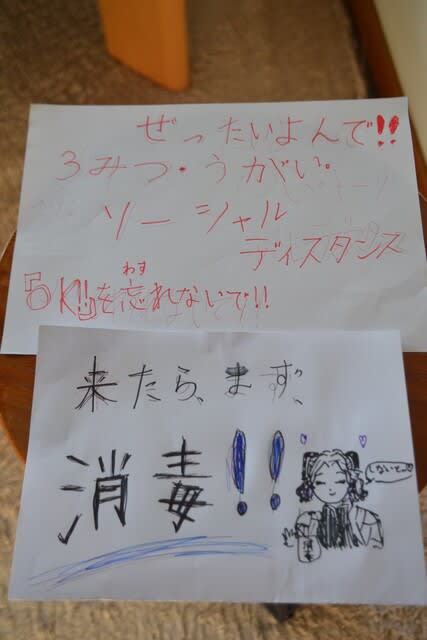 ぜったいよんで!!
3みつ・うがい。
ソーシャル
ディスタンス
わす
『5K!!』を忘れないで!!
来たら、まず、
消毒!!
しないとね♡